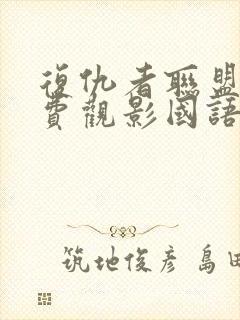 復仇者聯盟
費觀影國語
筑地俊彦 島田